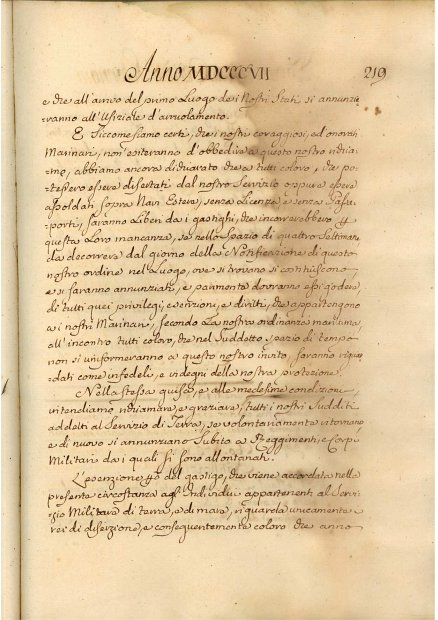 Anno MDCCCVII 219
e che all'arrivo del primo Luogo dei Nostri Stati si annunzie
ranno all'Ufiziale d'arruolamento.
E siccome siamo certi, che i nostri coraggiosi, ed onorati
Marinari, non esiteranno d'obbedire a questo nostro richia
mo, abbiamo ancora dichiarato che a tutti coloro, che po-
tessero essere disertati dal nostro Servizio oppure essere
assoldati sopra Navi Estere, senza Licenza e senza Passa-
porti, saranno Liberi da i gastighi, che incorrerebbero
questa Loro mancanza, se nello spazio di quattro Settimane
da decorrere dal giorno della Notificazione di questo
nostro ordine nel Luogo, ove si trovano si costituiscono
e si faranno annunziati, e parimente dovranno essi godere,
di tutti quei privilegj, esenzioni, e diritti, che appartengono
a i nostri Marinari, secondo La nostra ordinanza marittima,
all'incontro tutti coloro, che nel suddetto spazio di tempo
non si uniformeranno a questo nostro invito, saranno rigua
rdati come infedeli, e indegni della nostra protezione.
Nella stessa guisa, e alle medesime condizioni
intendiamo richiamare, e graziare, tutti i nostri Sudditi
addetti al Servizio di Terra, se volontariamente ritornano
e di nuovo si annunziano subito a Reggimenti, e Corpi
Militari da i quali si sono allontanati.
L'esenzione del gastigo, che viene accordata nella
presente circostanza agl'Individui appartenenti al Servi-
zio Militare di terra, e di mare, riguarda unicamente
rei di diserzione, e conseguentemente coloro che anno